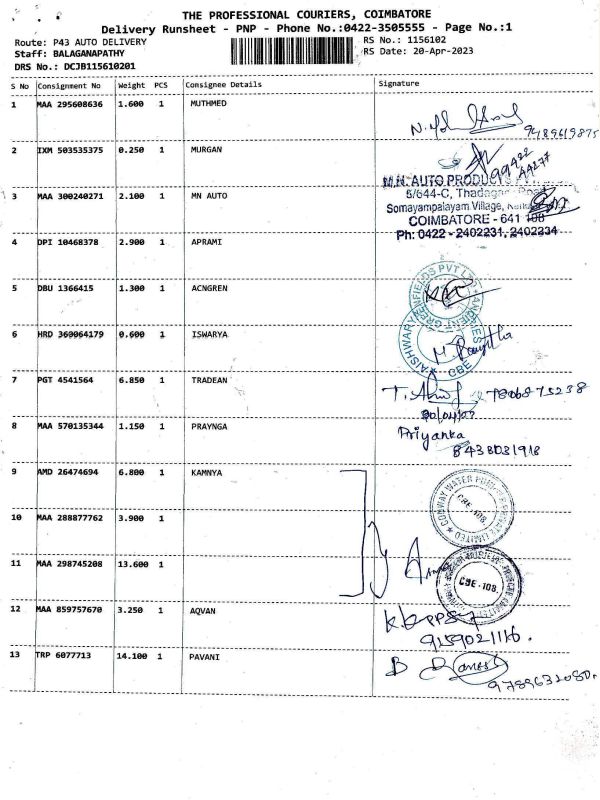 THE PROFESSIONAL COURIERS, COIMBATORE
Delivery Runsheet - PNP - Phone No.:0422-3505555 - Page No.:1
Route: P43 AUTO DELIVERY
RS No.: 1156102
Staff: BALAGANAPATHY
RS Date: 20-Apr-2023
DRS No.: DCJB115610201
S No Consignment No Weight PCS Consignee Details Signature
1 MAA 295608636 1.600 1 MUTHMED
9489619875
2 IXM 503535375 0.250 1 MURGAN
99422
44277
3 MAA 300240271 2.100 1 MN AUTO
M.N. AUTO PRODUCTS
5/644-C, Thadagam Road
Somayampalayam Village,
COIMBATORE - 641 108
Ph: 0422 - 2402231, 2402234
4 DPI 10468378 2.900 1 APRAMI
5 DBU 1366415 1.300 1 ACNGREN
GREENFIELDS PVT LTD
6 HRD 360064179 0.600 1 ISWARYA
CBE
7 PGT 4541564 6.850 1 TRADEAN
7806875238
8 MAA 570135344 1.150 1 PRAYNGA
Priyanka
8438031918
9 AMD 26474694 6.800 1 KAMNYA
CONWAY WATER PURIFIER PRIVATE LIMITED
CBE-108.
10 MAA 288877762 3.900 1
11 MAA 298745208 13.600 1
CBE-108.
12 MAA 859757670 3.250 1 AQVAN
9159021116.
13 TRP 6077713 14.100 1 PAVANI
9789632080.